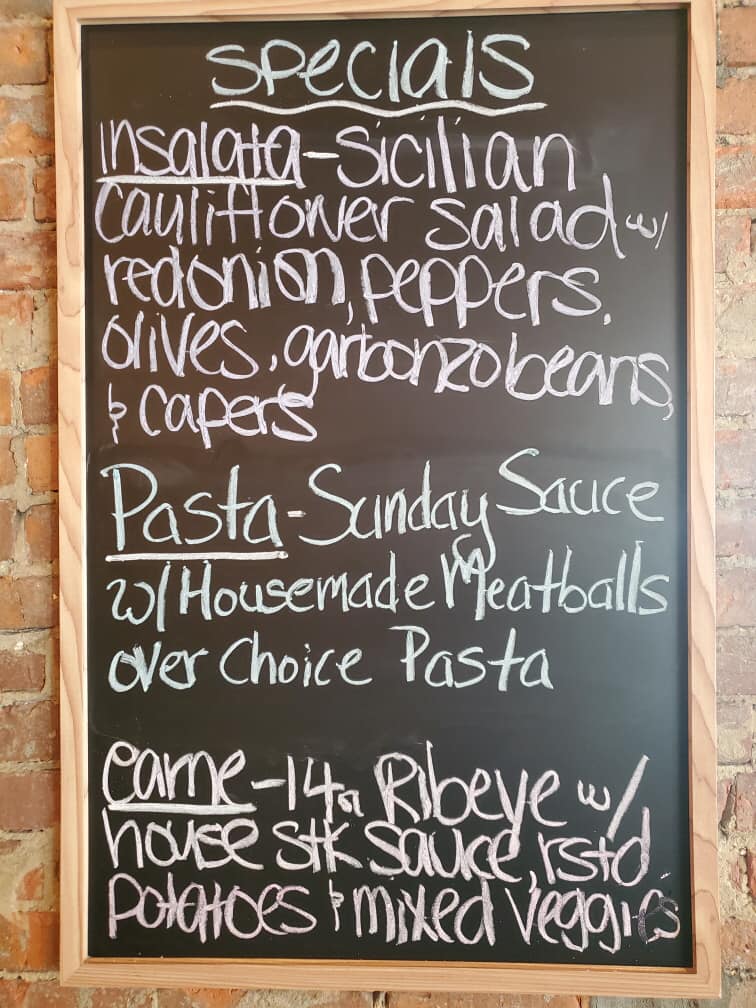 Specials
Insalata - Sicilian
Cauliflower Salad w/
red onion, peppers,
olives, garbonzo beans,
& capers
Pasta - Sunday Sauce
w/ Housemade Meatballs
over Choice Pasta
Carne - 14oz Ribeye w/
house stk sauce, rstd
potatoes & mixed veggies